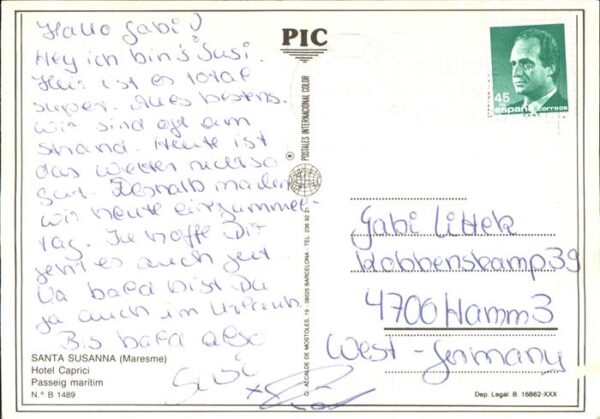 Hallo Gabi!
Hey ich bin's Susi.
Hier ist es total
super. Alles bestens.
Wir sind oft am
Strand. Heute ist
das Wetter nicht so
gut. Deshalb machen
wir heute ein
tag. Ich hoffe Dir
geht es auch gut.
Na bald bist Du
ja auch im Urlaub.
Bis bald also
Susi
SANTA SUSANNA (Maresme)
Hotel Caprici
Passeig marítim
N.º B 1489
PIC
POSTALES INTERNACIONAL COLOR
C/ ALCALDE DE MOSTOLES, 19 - 08025 BARCELONA - TEL. 236 92 21
45
españa correos
Gabi Littek
39
4700 Hamm 3
West-Germany
Dep. Legal: B. 16862-XXX